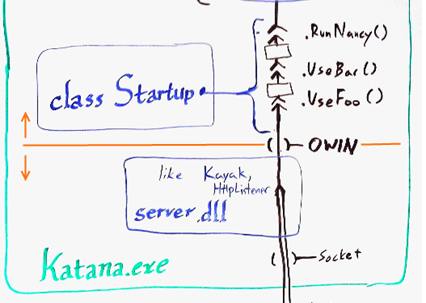 .RunNancy()
.UseBar()
class Startup
.UseFoo()
OWIN
like Kayak,
HttpListener
server.dll
Socket
Katana.exe